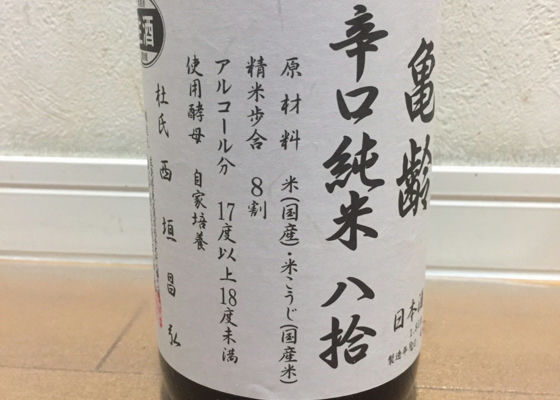 亀齢
日本酒
辛口純米 八拾
原材料 米(国産)・米こうじ(国産米)
精米歩合 8割
アルコール分 17度以上18度未満
使用酵母 自家培養
杜氏 西垣昌弘
酒